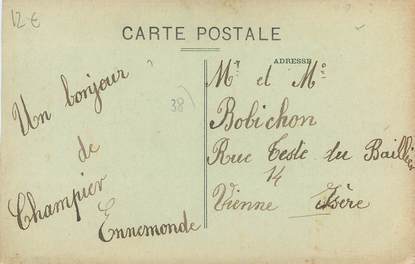 12 €
CARTE POSTALE
ADRESSE
38
Un bonjour
de
Champier
Ennemonde
Mr et Me
Bobichon
Rue Teste du Baillier
14
Vienne Isère